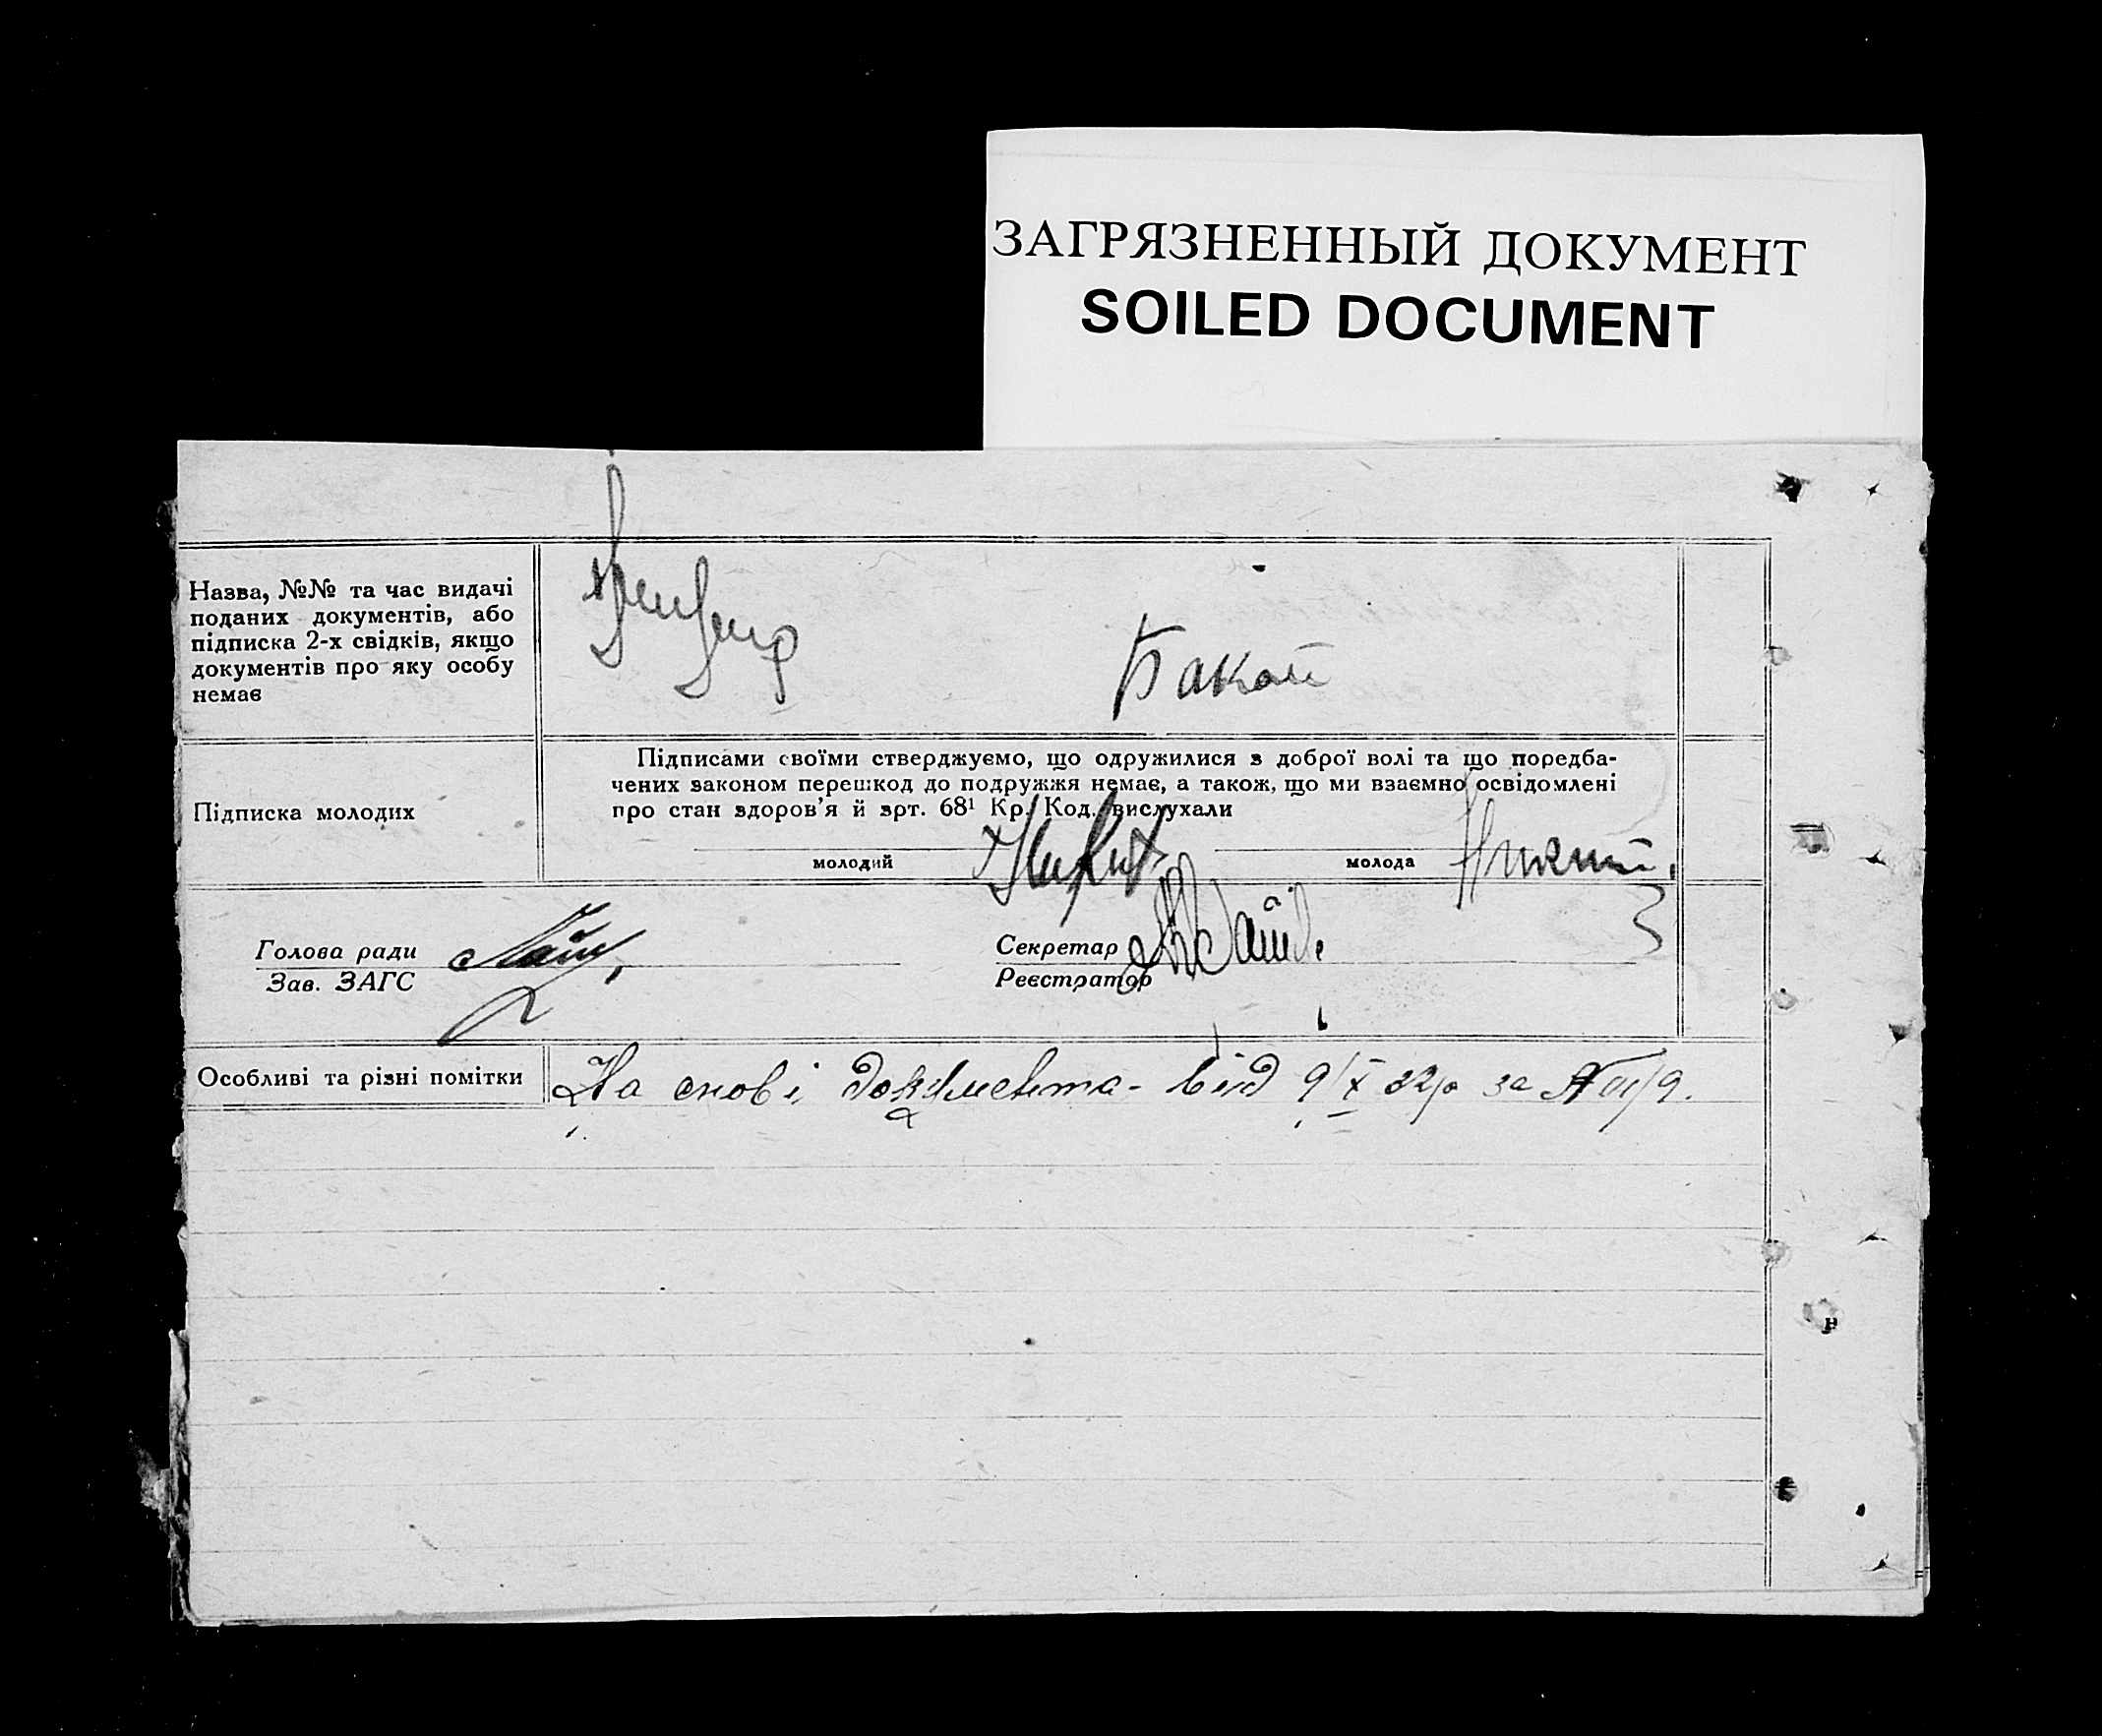 ЗАГРЯЗНЕННЫЙ ДОКУМЕНТ
SOILED DOCUMENT
Назва, №№ та час видачі
поданих документів, або
підписка 2-х свідків, якщо
документів про яку особу
немає
Підписка молодих
Підписами своїми стверджуємо, що одружилися з доброї волі та що поредба-
чених законом перешкод до подружжя немає, а також, що ми взаємно освідомлені
про стан здоров'я й арт. 68¹ Кр. Код. вислухали
молодий
молода
Голова ради
Зав. ЗАГС
Секретар
Реєстратор
Особливі та різні помітки
На снові документа від 9/X 32р за №
н